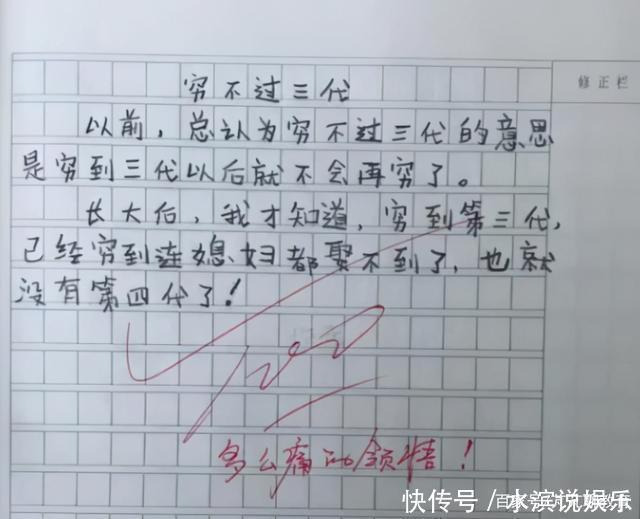 修正栏
穷不过三代
以前，总认为穷不过三代的意思
是穷到三代以后就不会再穷了。
长大后，我才知道，穷到第三代，
已经穷到连媳妇都娶不到了，也就
没有第四代了！
100
多么痛的领悟！
快传号／水滨说娱乐